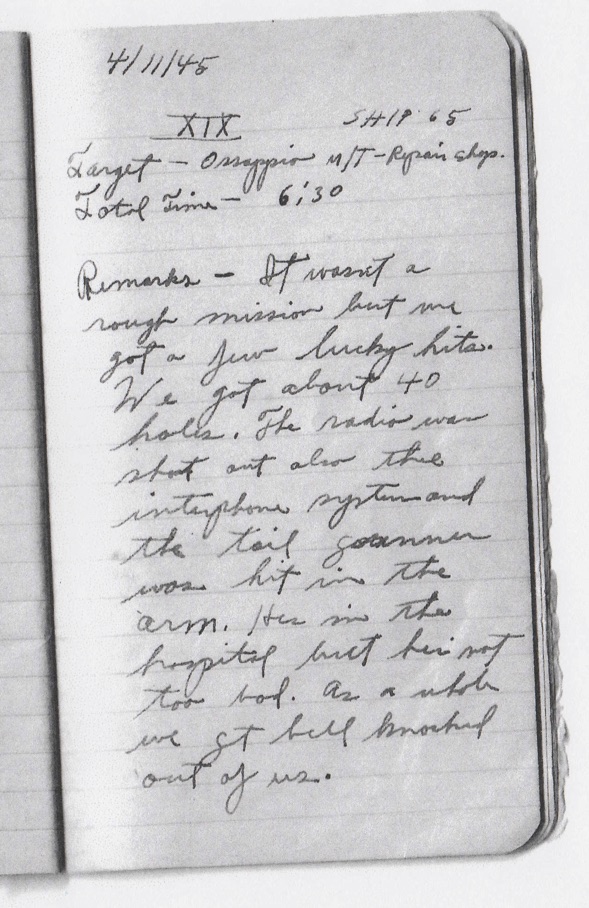 4/11/45
XIX SHIP 65
Target - Ossappio M/T-Repair shop.
Total Time - 6:30
Remarks - It wasn't a
rough mission but we
got a few lucky hits.
We got about 40
holes. The radio was
shot out also the
interphone system and
the tail gunner
was hit in the
arm. Hes in the
hospital but he's not
too bad. As a whole
we got hell knocked
out of us.